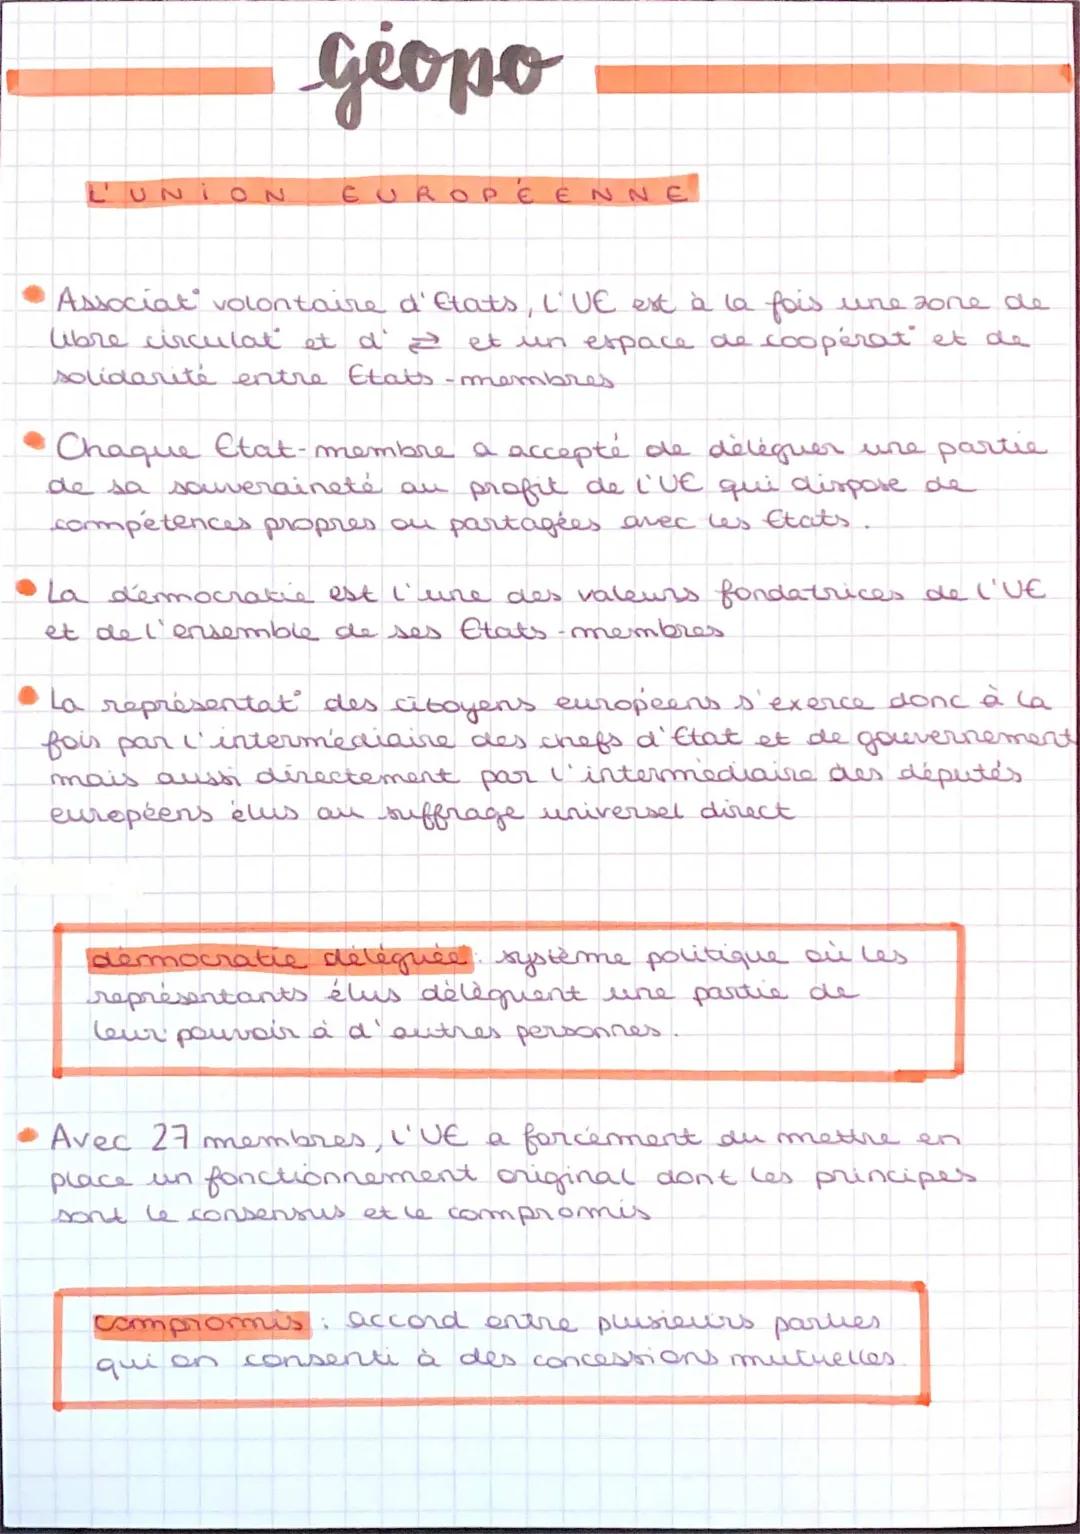 géopo
L'UNION EUROPÉENNE
Associat° volontaire d'Etats, L'UE est à la fois une zone de
libre circulat° et d' ⇄ et un espace de coopérat° et de
solidarité entre Etats-membres
Chaque Etat-membre a accepté de déléguer une partie
de sa souveraineté au profit de l'UE qui dispose de
compétences propres ou partagées avec les Etats.
La démocratie est l'une des valeurs fondatrices de l'UE
et de l'ensemble de ses Etats-membres
La représentat° des citoyens européens s'exerce donc à la
fois par l'intermédiaire des chefs d'Etat et de gouvernement
mais aussi directement par l'intermédiaire des députés
européens élus au suffrage universel direct
démocratie déléguée : système politique où les
représentants élus délèguent une partie de
leur pouvoir à d'autres personnes.
Avec 27 membres, l'UE a forcément du mettre en
place un fonctionnement original dont les principes
sont le consensus et le compromis
compromis : accord entre plusieurs parties
qui on consenti à des concessions mutuelles.